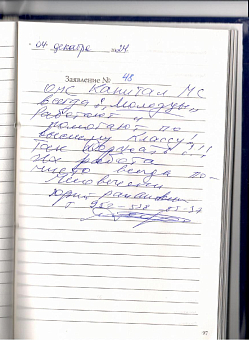 04 декабря 2024
Заявление № 48
ОМС Капитал МС
всегда "Молодцы"
Работают и
помогают по
высшему классу!
Так держать!!!
Их работа
чисто всегда по-
человечески
Юрий
т
97